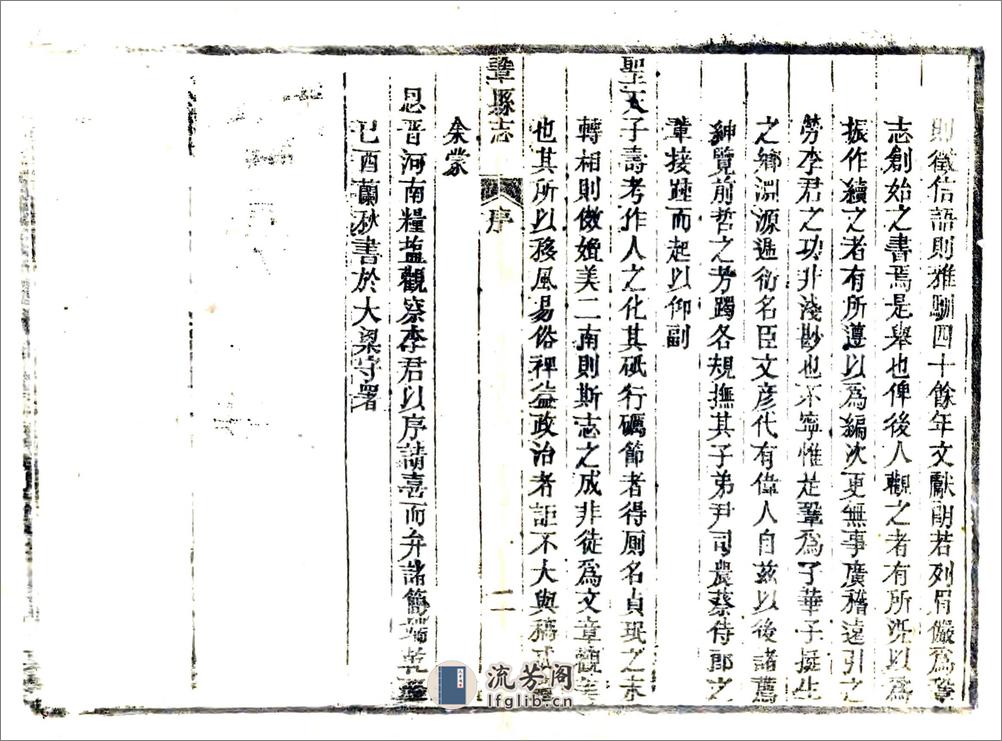 則徵信語則雅馴四十餘年文獻朗若列眉儼為鞏
志創始之書焉是舉也俾後人觀之者有所興以為
振作續之者有所遵以為編次更無事廣稽遠引之
勞李君之功非淺尠也不寧惟是鞏為子華子挺生
之鄉淵源過衍名臣文彥代有偉人自茲以後諸薦
紳覽前哲之芳躅各規撫其子弟尹司農蔡侍郎之
輩接踵而起以仰副
聖天子壽考作人之化其砥行礪節者得廁名貞珉之末
轉相則傚媲美二南則斯志之成非徒為文章觀美
也其所以移風易俗裨益政治者詎不大與稿
鞏縣志
序
二
余蒙
恩晉河南糧鹽觀察李君以序請喜而弁諸簡端乾隆
己酉蘭秋書於大梁守署
流芳阁
lfglib.cn